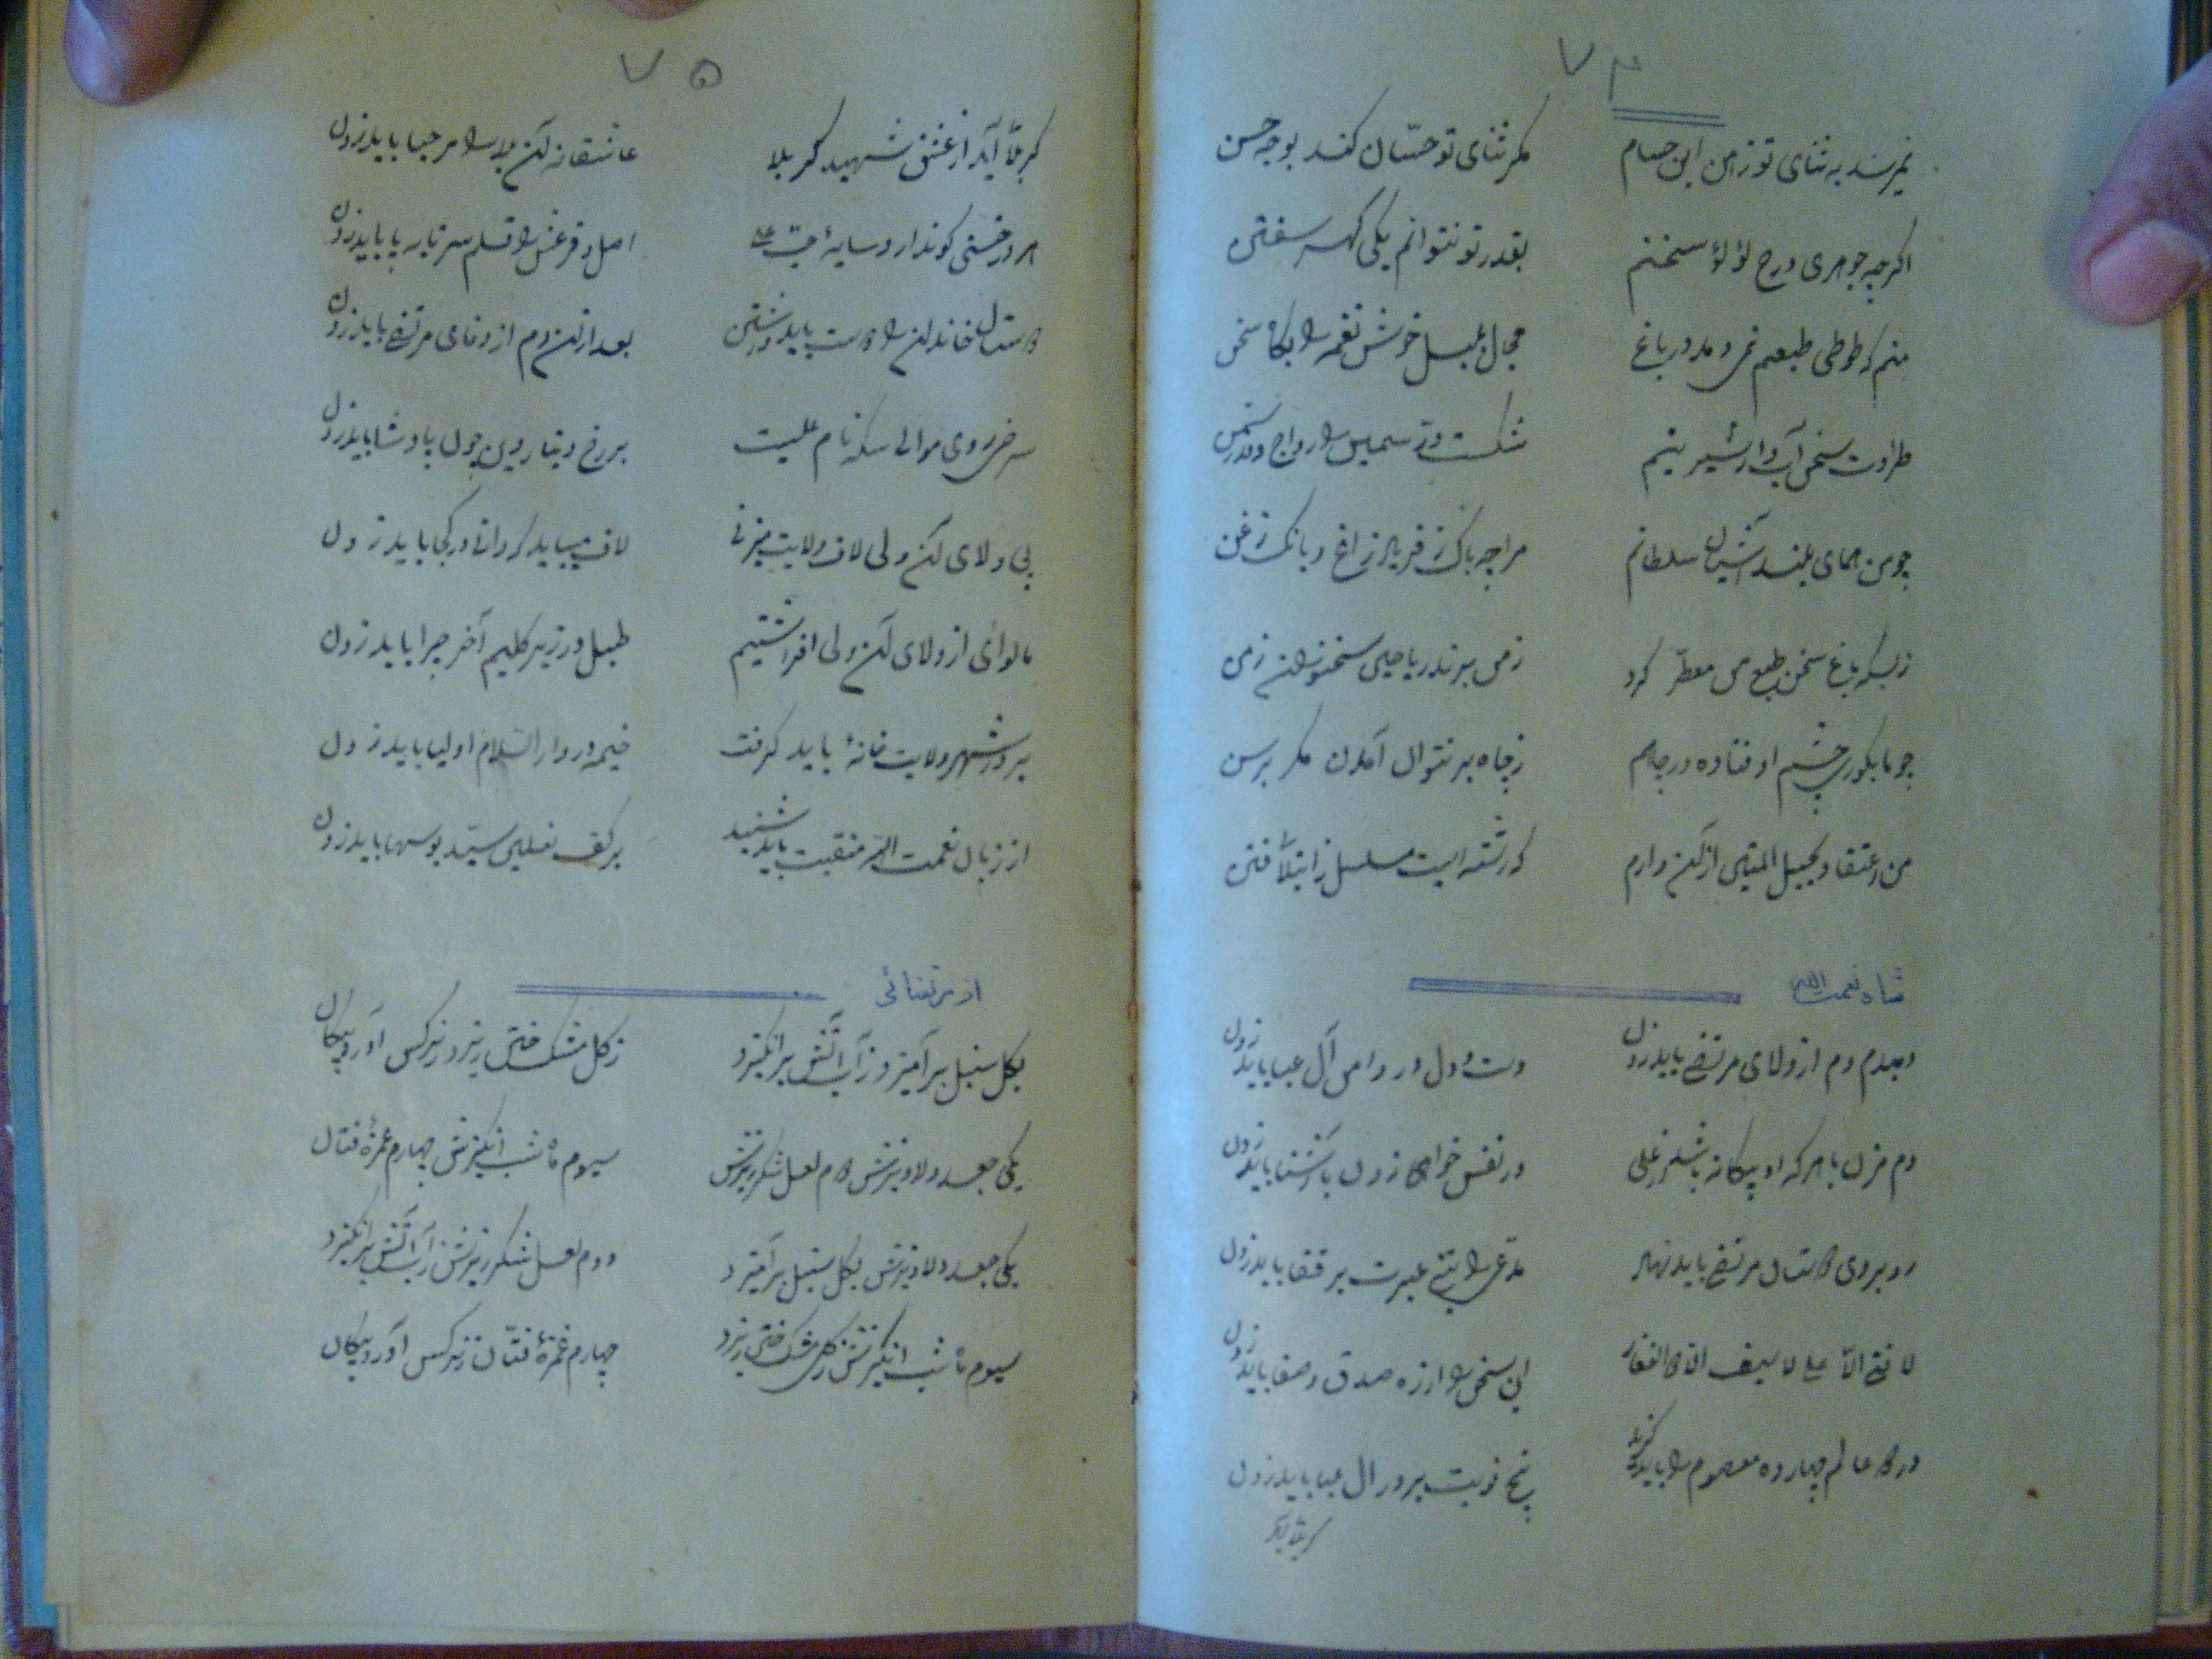 ۷۴
نمیرسد به ثنای تو ز من ابن حسام مکر ثنای تو حسّان کند بوجه حسن
اکر چه جوهری درج لؤلؤ سخنم بقدر تو نتوانم یکی کهر سفتن
منم که طوطی طبعم در باغ مجال بلبل خوش نغمه را بکاه سخن
طراوت سخن آبدار شیرینم شکست رواج
چو من همای بلند آشیان سلطانم مرا چه باک ز فریاد زاغ و بانک زغن
ز بسکه باغ سخن طبع من معطّر کرد ز من برند ریاحین سخنوران زمن
چو ما بکوری چشم اوفتاده در چاهم ز چاه بر نتوان آمدن مکر برسن
من اعتقاد بحبل المتین از آن دارم که رشته ایست مسلسل ز ابتلاء فتن
شاه نعمت الله
دمبدم دم از ولای مرتضی باید زدن دست دل در دامن آل عبا باید زدن
دم مزن با هر که او بیکانه باشد از علی ور نفس خواهی زدن با آشنا باید زدن
رو بروی دوستان مرتضی باید نهاد مدّعی را تیغ غیرت بر قفا باید زدن
لا فتی الّا علی لا سیف الّا ذوالفقار این سخن را از ره صدق و صفا باید زدن
در دو عالم چهارده معصوم را باید کزید پنج نوبت بر در آل عبا باید زدن
کر بلا آید
۷۵
کر بلا آید از عشق شهید کربلا عاشقانه آن بلا را مرحبا باید زدن
هر درختی کو ندارد سایهٔ حبّ علی اصل و فرعش را قلم سر تا بپا باید زدن
دوستان خاندان را دوست باید داشتن بعد از آن دم از وفای مرتضی باید زدن
سرخی روی موالی سکهٔ نام علیست بر رخ دینار دین چون پادشا باید زدن
بی ولای آن ولی لاف ولایت میزنی لاف میباید که دانی در کجا باید زدن
ما لوائی از ولای آن ولی افراشتیم طبل در زیر کلیم آخر چرا باید زدن
بر در شهر ولایت خانهٔ باید کرفت خیمه در دار السّلام اولیا باید زدن
از زبان نعمت الله منقبت باید شنید بر کف نعلین سیّد بوسها باید زدن
بکل سنبل برآمیزد ز آب آتش برانکیزد ز کل مشک ختن ریزد ز نرکس آورد پیکان
یکی جعد دلاویزش دوم لعل شکرریزش سیوم شب انکیزش چهارم غمزهٔ فتان
یکی جعد دلاویزش بکل سنبل برآمیزد دوم لعل شکرریزش ز آب آتش برانکیزد
سیوم شب انکیزش ز کل مشک ختن ریزد چهارم غمزهٔ فتّان ز نرکس آورد پیکان